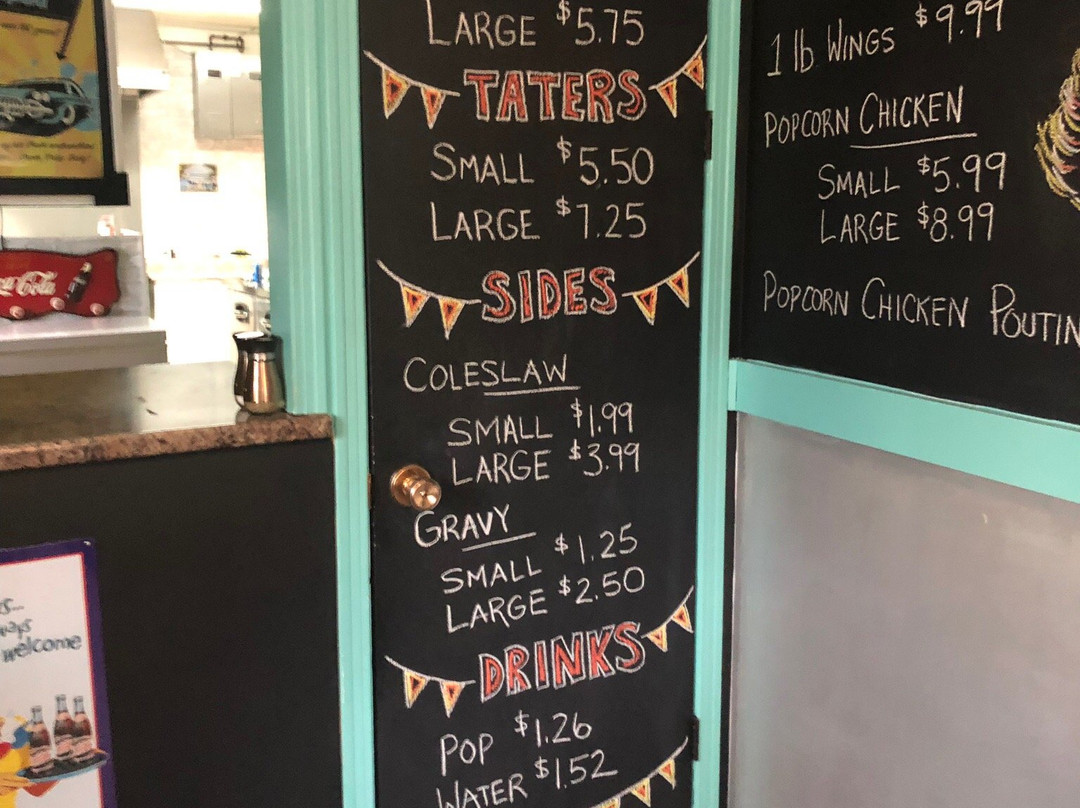 LARGE $5.75
TATERS
SMALL $5.50
LARGE $7.25
SIDES
COLESLAW
SMALL $1.99
LARGE $3.99
GRAVY
SMALL $1.25
LARGE $2.50
DRINKS
POP $1.26
WATER $1.52
1 lb WINGS $9.99
POPCORN CHICKEN
SMALL $5.99
LARGE $8.99
POPCORN CHICKEN POUTIN
Coca-Cola
welcome